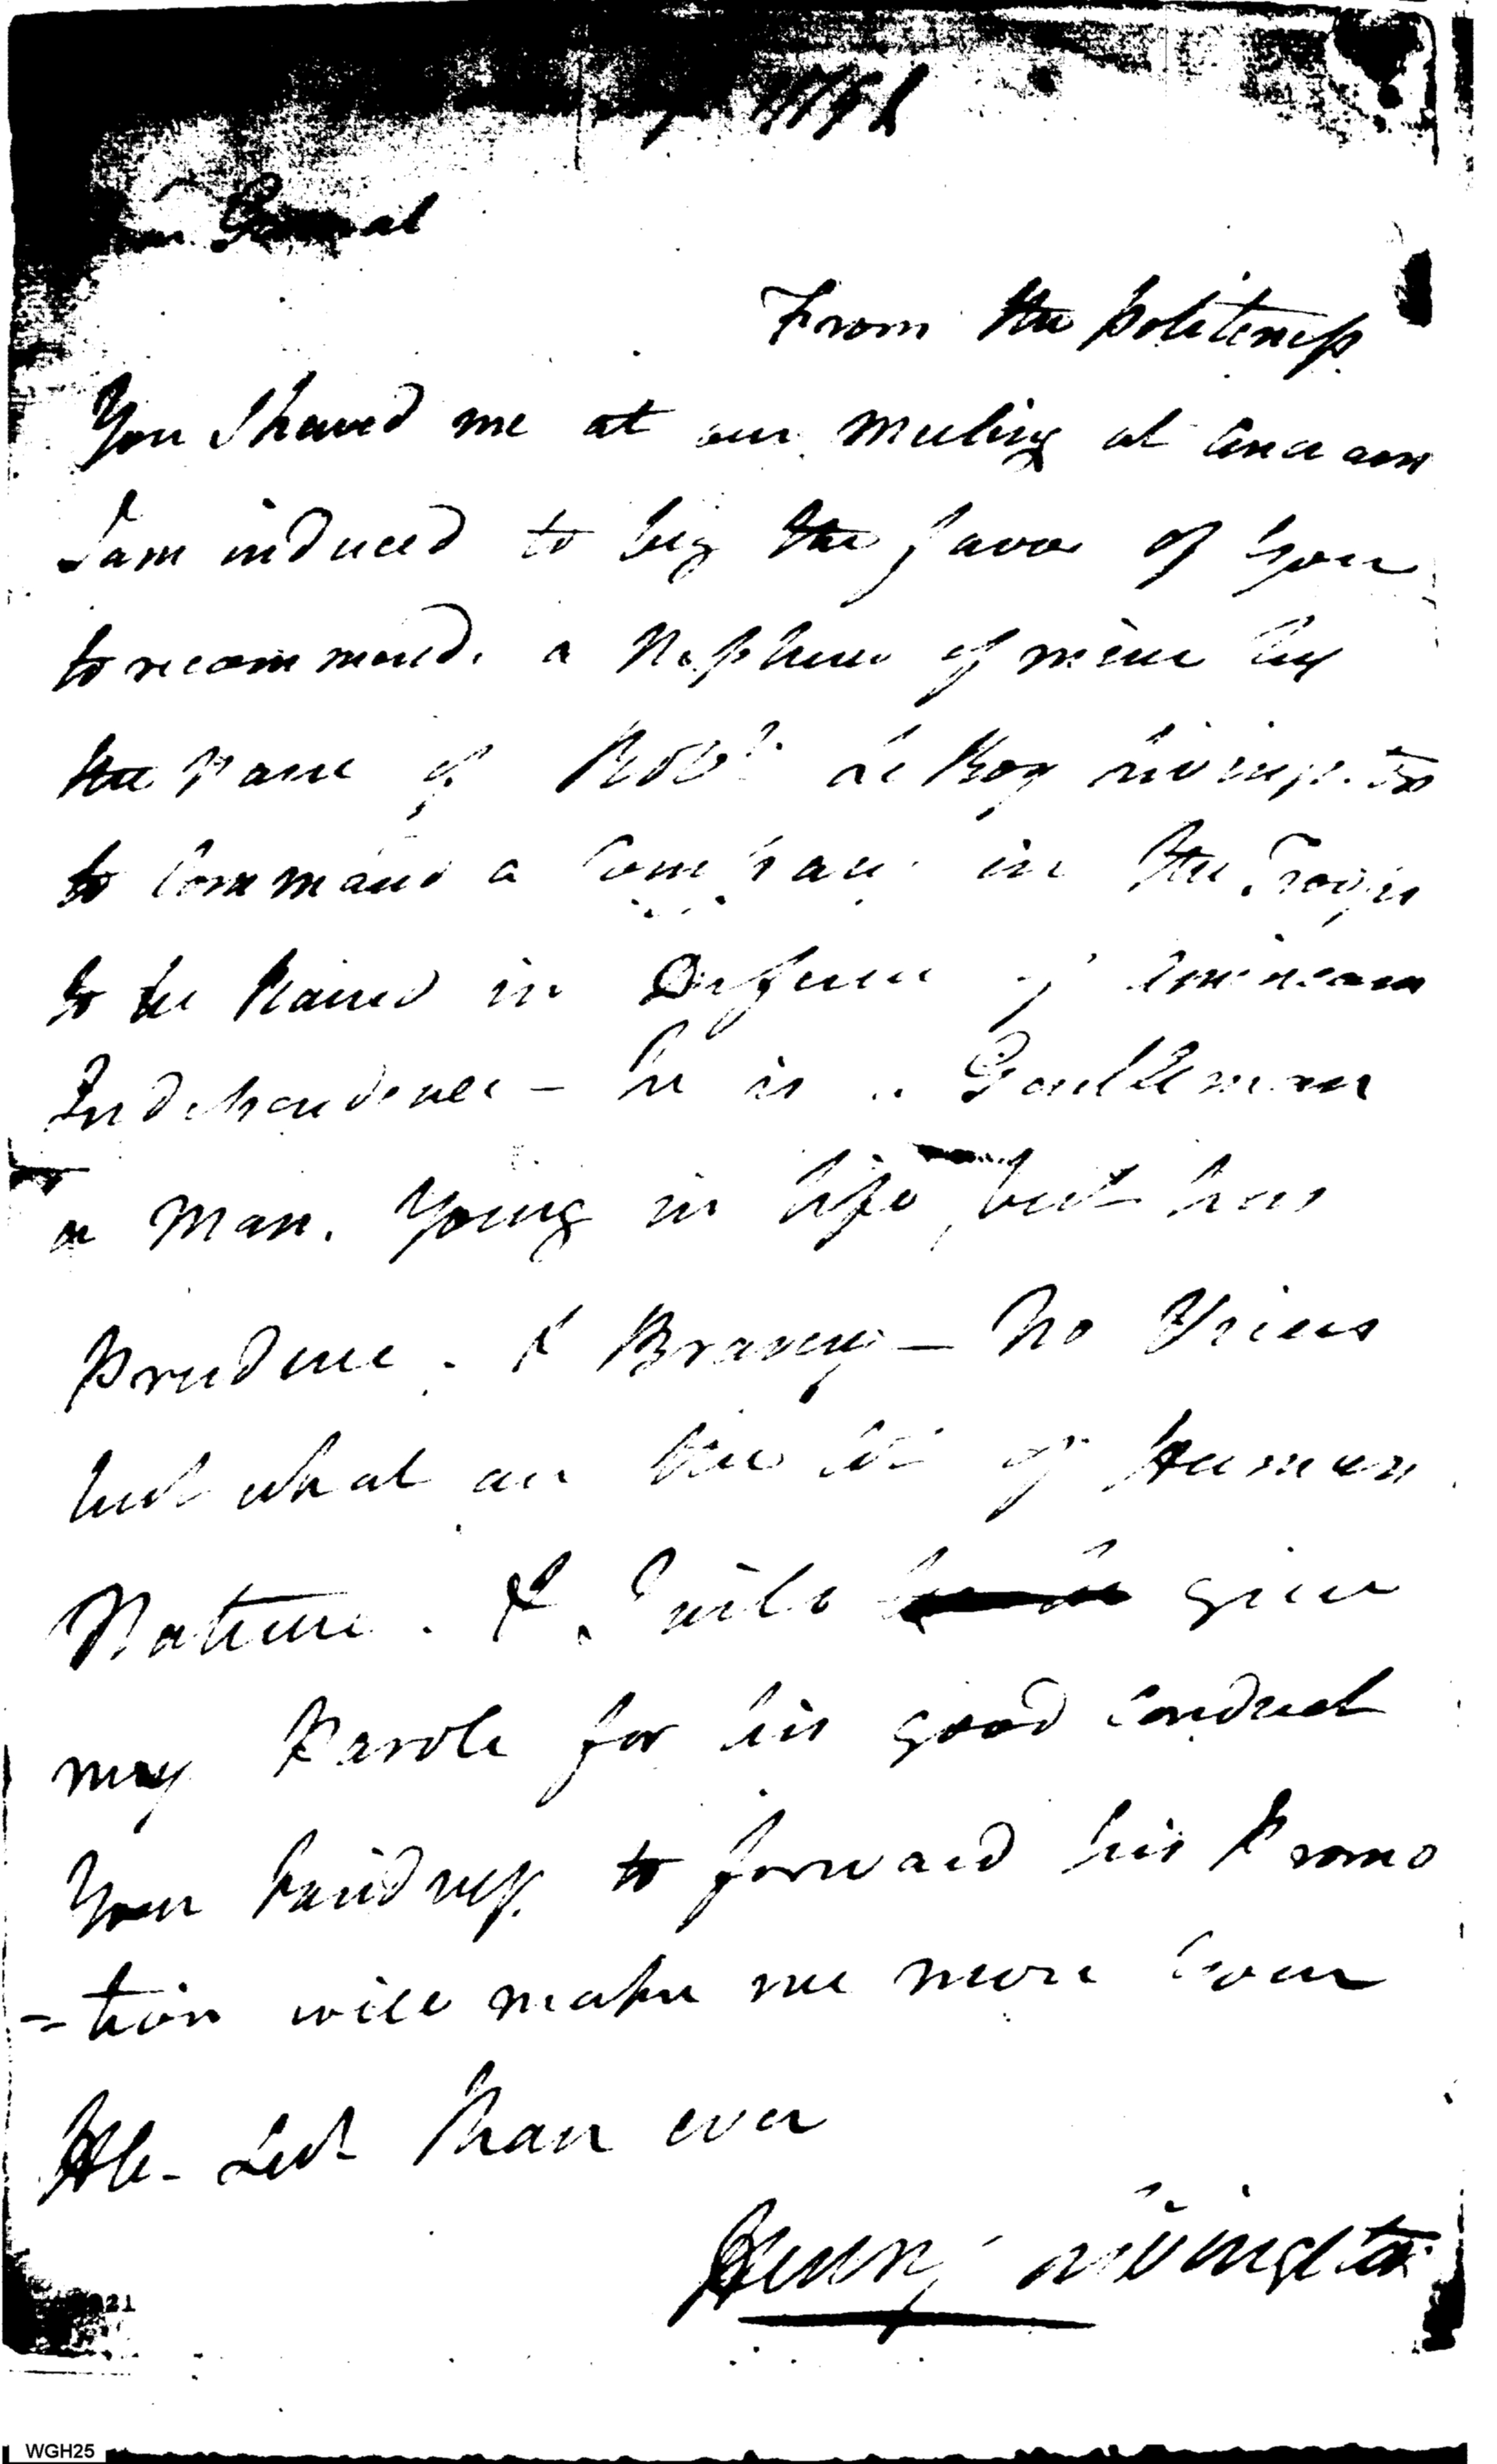 General
From the politeness
You Shewed me at our meeting at
I am induced to beg the favor of you
to recommend. a Nephew of mine by
the Name of Robt. Le Roy Livingston
to Command a Company in the Troops
to be Raised in Defence of American
Independence - he is a Gentleman
a Man. Young in life, but has
Prudence. & Bravery - No Vices
but what are the lot of Human
Nature. & I will give
my Parole for his good Conduct
Your kindness. to forward his Promo
=tion will make me more your
Ob. Sert than ever
Henry Livingston
21
WGH25